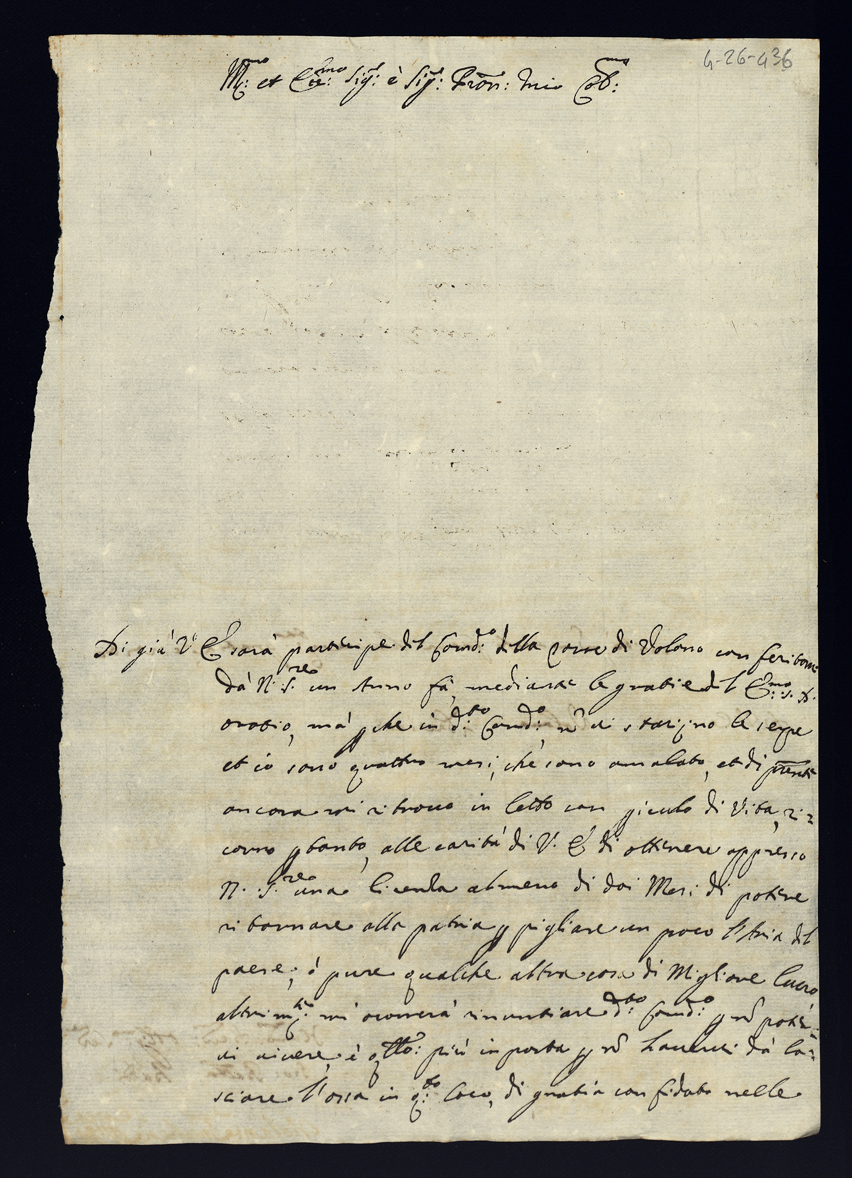 4-26-436
Ill:mo et Ecc:mo Sig.r è Sig.r Pron: mio Col:mo
Di già V. E. sarà partecipe del Comd:o della torre di Volano conferitome
dà N. S.re un Anno fà, mediante le gratie del E:mo S. D.
oratio, mà p che in d:to Comd:o n ui stariano le serpe
et io sono quattro mesi, che sono amalato, et di presente
ancora mi ritrouo in letto con piculo di Vita, ri=
corro p tanto, alle carità di V. E. di ottenere appresso
N. S.re una licenza almeno di doi Mesi di potere
ritornare alla patria p pigliare un poco l'Aria del
paese; ò pure qualche altra cosa di Migliore lucro,
altrim.te mi ocorrerà rinuntiare d:to Comd:o p nõ poter=
ui uiuere, è q.llo più importa p nõ hauerui dà la=
sciare l'ossa in q:to loco, di gratia confidato nelle